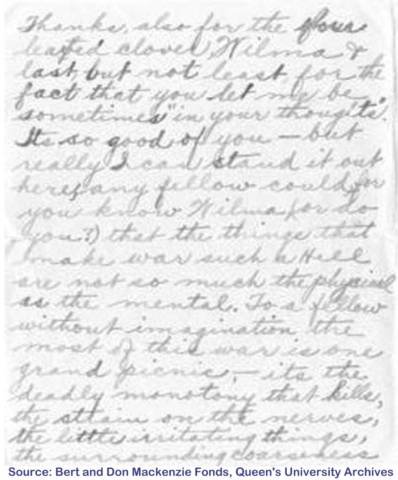 Thanks, also for the four
leafed clover Wilma &
last, but not least, for the
fact that you let me be
"sometimes" in your thoughts".
Its so good of you – but
really I can stand it out
here, any fellow could for
you know Wilma (or do
you?) that the things that
make war such a Hell
are not so much the physical
as the mental. To a fellow
without imagination the
most of this war is one
grand picnic, – its the
deadly monotony that kills,
the strain on the nerves,
the little irritating things,
the surrounding coarseness
Source: Bert and Don Mackenzie Fonds, Queen's University Archives